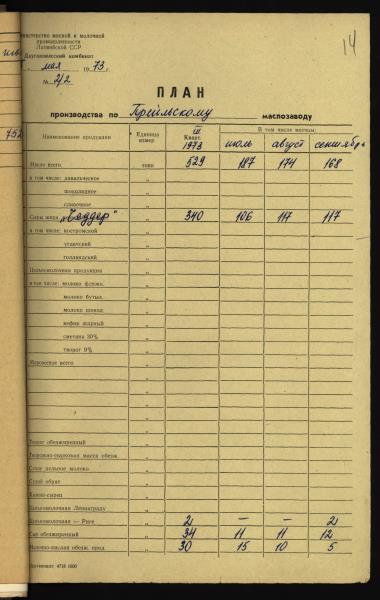 14
министерство мясной и молочной
промышленности
Латвийской ССР
мая 1973 г.
№ 2/2
752
ПЛАН
производства по Прейльскому маслозаводу
Наименование продукции Единица измер. III Кварт. 1973 В том числе месяцы:
июль август сентябрь
Масло всего тонн 529 187 174 168
в том числе: давальческое "
шоколадное "
сливочное "
Сыры жирн. „Чеддер" " 340 106 117 117
в том числе: костромской "
угличский "
голландский "
Цельномолочная продукция "
в том числе: молоко фляжн. "
молоко бутыл. "
молоко шокол. "
кефир жирный "
сметана 30% "
творог 9% "
Мороженое всего "
Творог обезжиренный "
Творожно-сырковая масса обезж. "
Сухое цельное молоко "
Сухой обрат "
Казеин-сырец "
Цельномолочная Ленинграду "
Цельномолочная — Риге " 2 — — 2
Сыр обезжиренный " 34 11 11 12
Молочно-кислая обезж. прод. " 30 15 10 5